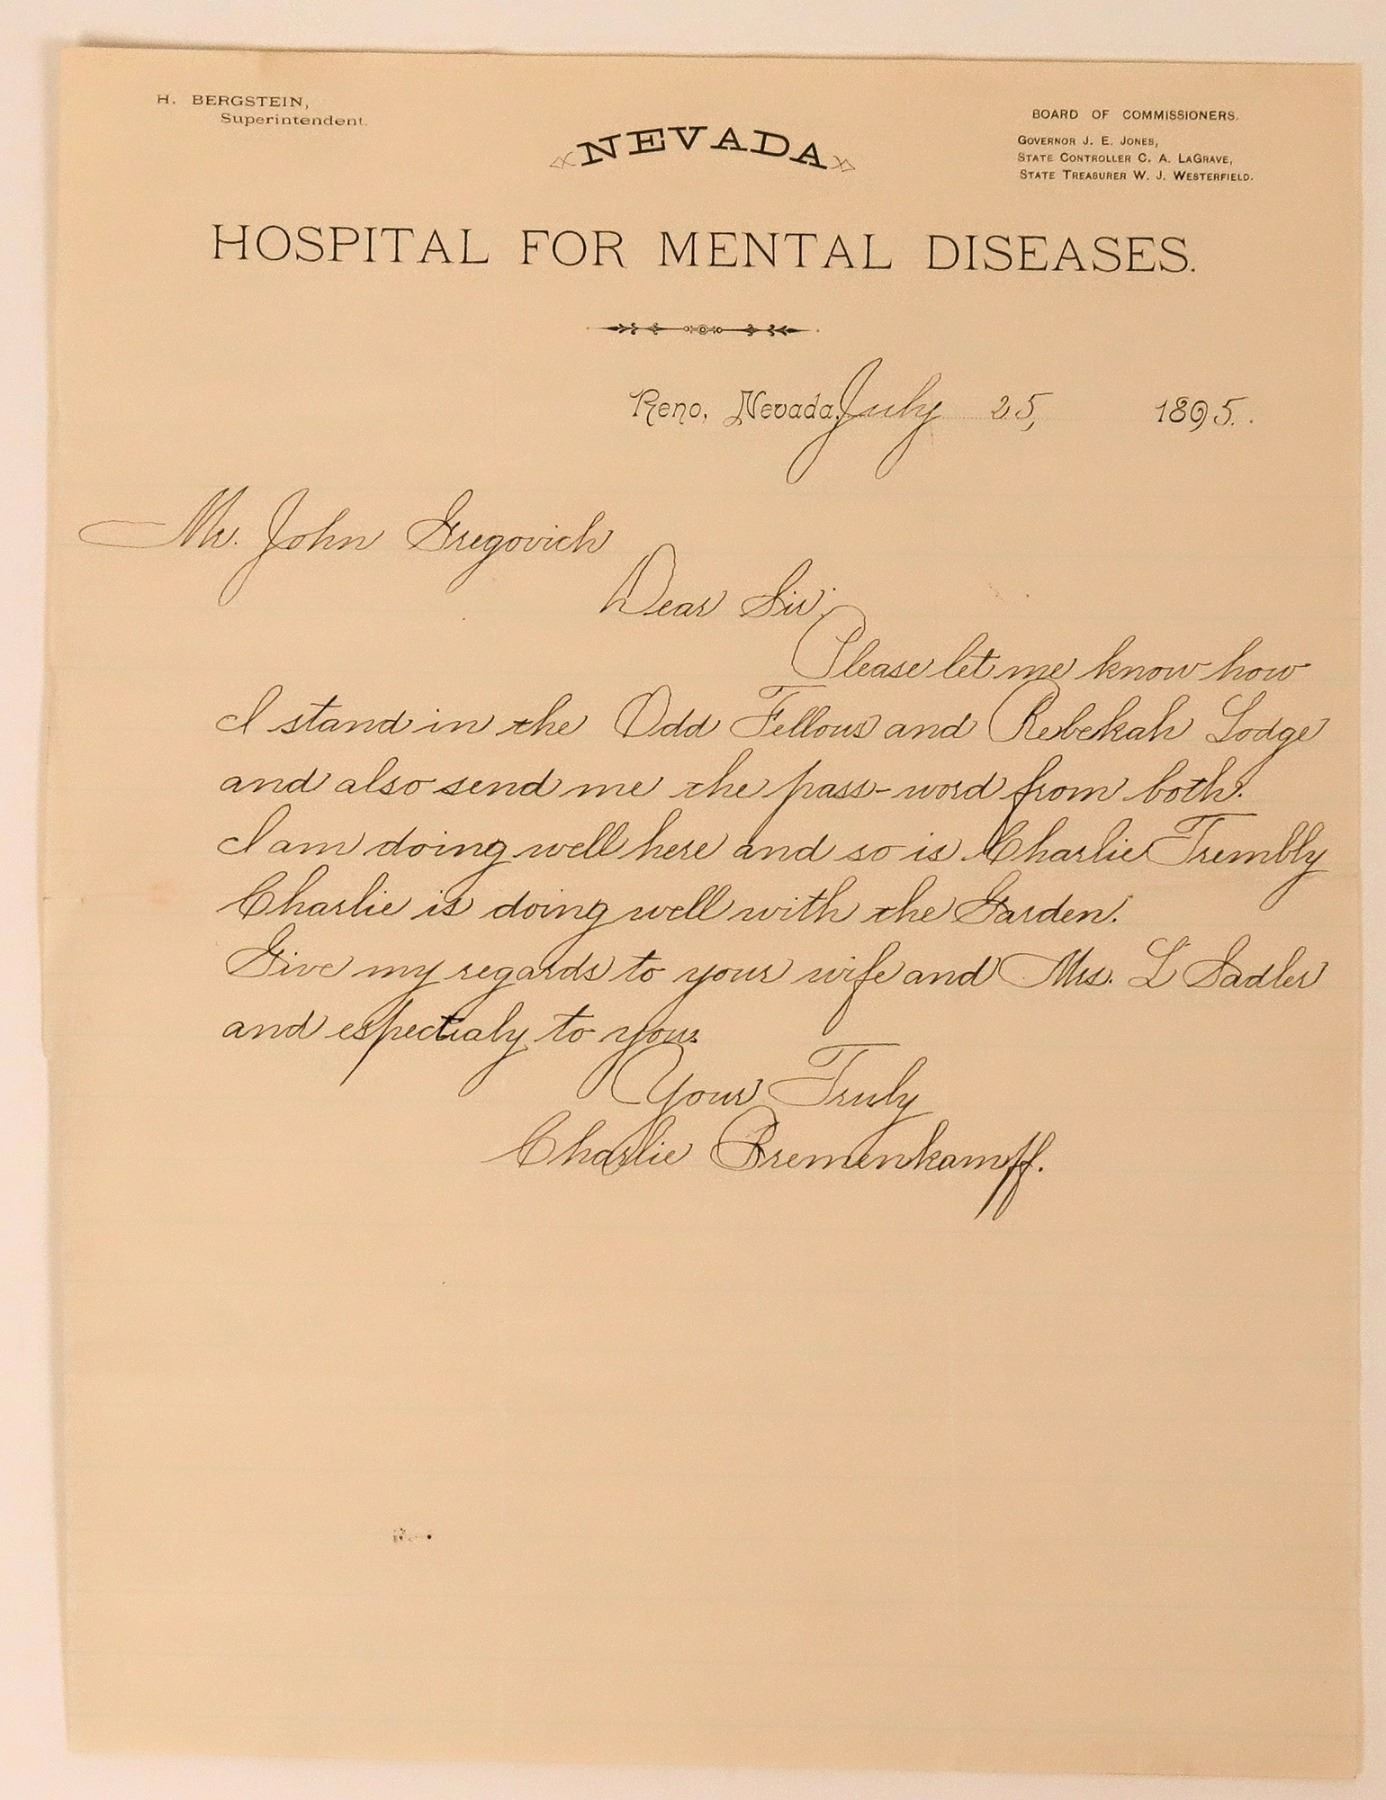 H. BERGSTEIN,
Superintendent.
BOARD OF COMMISSIONERS.
GOVERNOR J. E. JONES,
STATE CONTROLLER C. A. LAGRAVE,
STATE TREASURER W. J. WESTERFIELD.
NEVADA
HOSPITAL FOR MENTAL DISEASES.
Reno, Nevada, July 25, 1895.
Mr. John Gregovich
Dear Sir:
Please let me know how
I stand in the Odd Fellows and Rebekah Lodge
and also send me the pass-word from both.
I am doing well here and so is Charlie Trembly
Charlie is doing well with the Garden.
Give my regards to your wife and Mrs. L Sadler
and espectialy to you.
Your Truly
Charlie Bremenkampff.